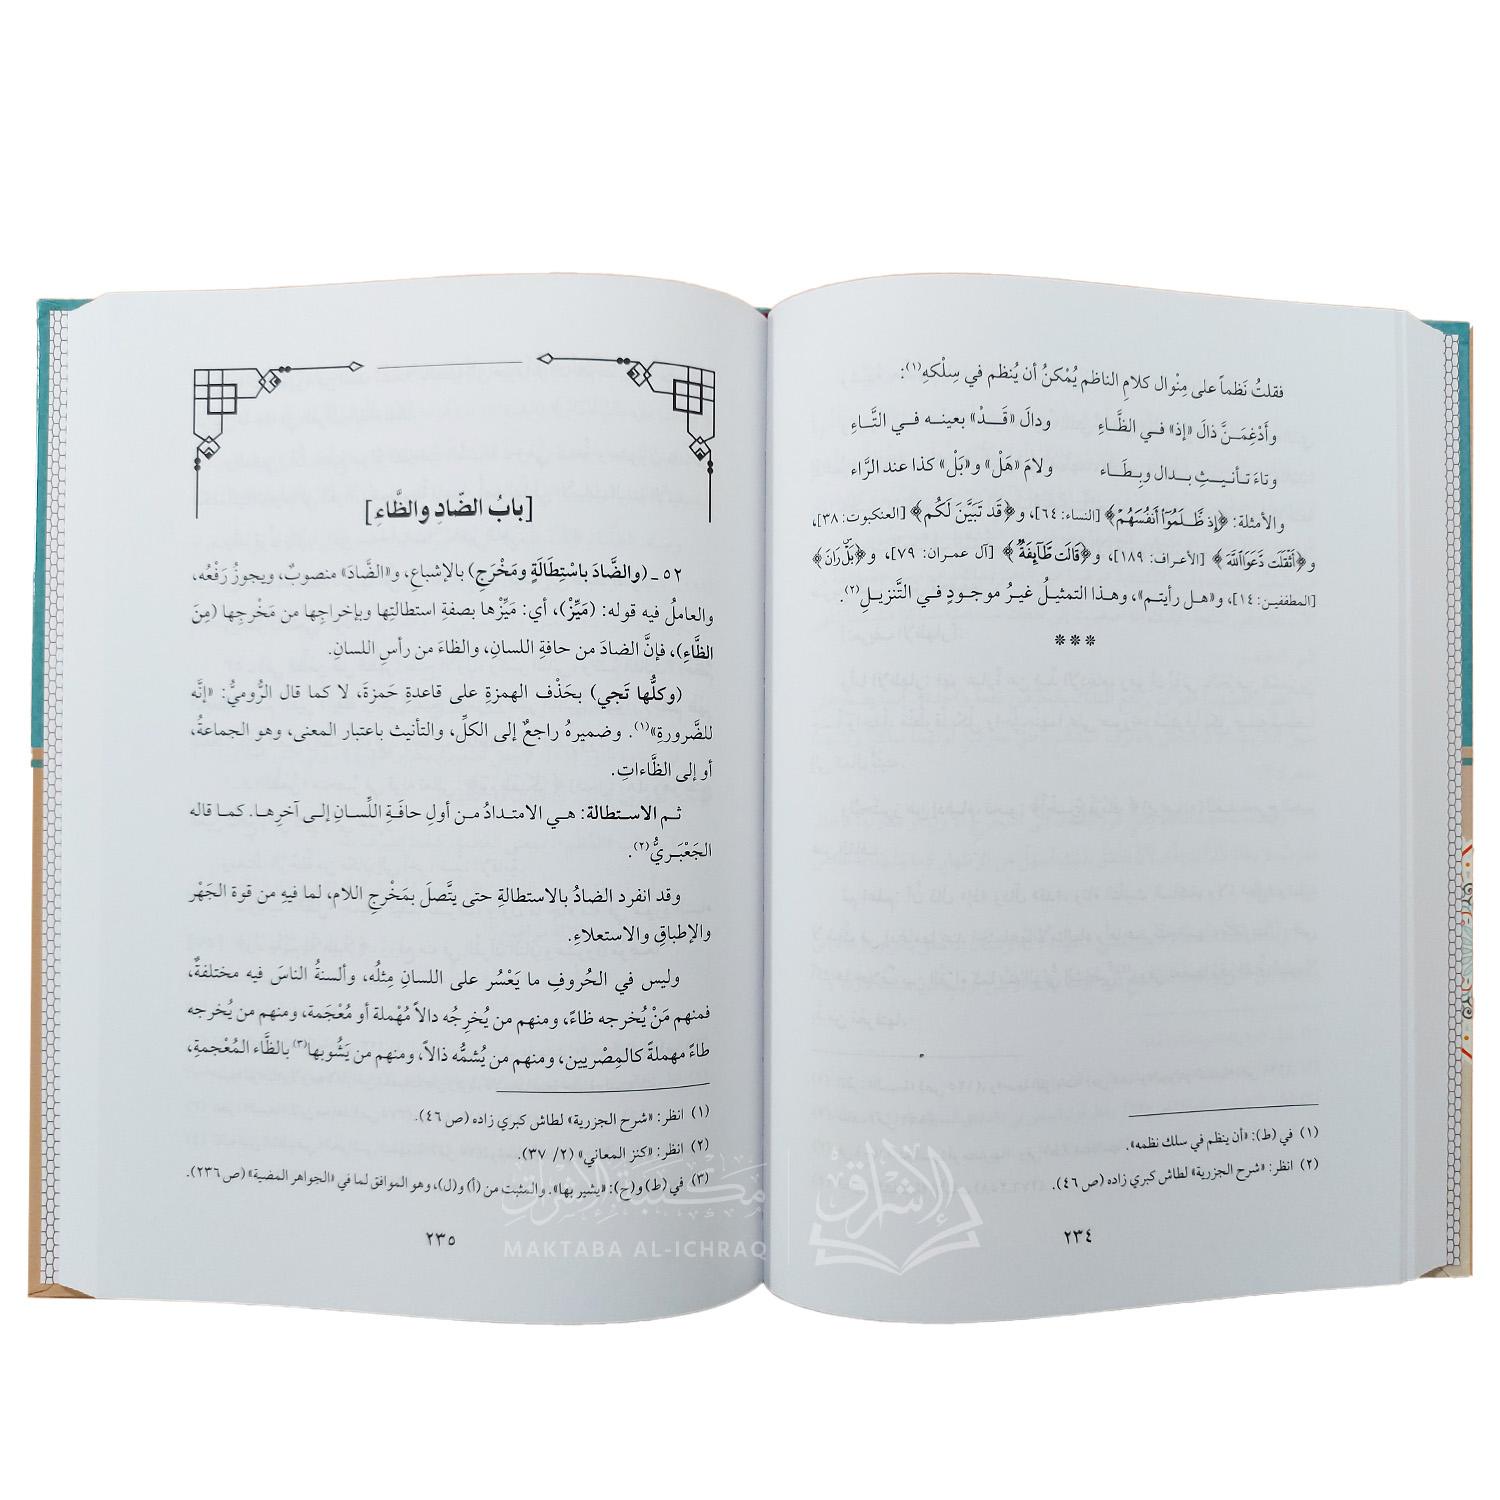 فقلتُ نَظماً على مِنْوال كلامِ الناظم يُمْكنُ أن يُنظم في سِلْكهِ(١):
وأَدْغِمَـنَّ ذالَ «إذ» فـي الظَّـاءِ ودالَ «قَــدْ» بعينـه فـي التَّـاءِ
وتاءَ تـأنـيـثٍ بـدال وبِطَـاء ولامَ «هَلْ» و«بَلْ» كذا عند الرَّاء
والأمثلة: ﴿إِذ ظَّلَمُوٓا۟ أَنفُسَهُمْ﴾ [النساء: ٦٤]، و﴿قَد تَّبَيَّنَ لَكُم﴾ [العنكبوت: ٣٨]،
و﴿أَثْقَلَت دَّعَوَا ٱللَّهَ﴾ [الأعراف: ١٨٩]، و﴿قَالَت طَّآئِفَةٌ﴾ [آل عمـران: ٧٩]، و﴿بَلْ رَانَ﴾
[المطففين: ١٤]، و«هـل رأيتم»، وهـذا التمثيلُ غيـرُ موجـودٍ فـي التَّنزيـلِ(٢).
***
(١) في (ط): «أن ينظم في سلك نظمه».
(٢) انظر: «شرح الجزرية» لطاش كبري زاده (ص ٤٦).
٢٣٤
[بابُ الضّادِ والظَّاءِ]
٥٢ ـ (والضَّادَ باسْتِطَالَةٍ ومَخْرَجِ) بالإشباعِ، و«الضَّادَ» منصوبٌ، ويجوزُ رَفْعُه،
والعاملُ فيه قوله: (مَيِّزْ)، أي: مَيِّزْها بصفةِ استطالتِها وبإخراجِها من مَخْرجِها (مِنَ
الظَّاءِ)، فإنَّ الضادَ من حافةِ اللسانِ، والظاءَ من رأسِ اللسانِ.
(وكلُّها تَجي) بحَذْف الهمزةِ على قاعدةِ حَمزةَ، لا كما قال الرُّوميُّ: «إنَّه
للضَّرورةِ»(١). وضميرهُ راجعٌ إلى الكلِّ، والتأنيث باعتبار المعنى، وهو الجماعةُ،
أو إلى الظَّاءاتِ.
ثـم الاسـتطالة: هـي الامتـدادُ مـن أولِ حافَـةِ اللِّسـانِ إلـى آخرِهـا. كمـا قاله
الجَعْبَريُّ(٢).
وقد انفرد الضادُ بالاستطالةِ حتى يتَّصلَ بمَخْرجِ اللام، لما فيهِ من قوة الجَهْر
والإطباقِ والاستعلاءِ.
وليس في الحُروفِ ما يَعْسُر على اللسانِ مِثلُه، وألسنةُ الناسَ فيه مختلفةٌ،
فمنهم مَنْ يُخرجه ظاءً، ومنهم من يُخرِجُه دالاً مُهْملة أو مُعْجَمة، ومنهم من يُخرجه
طاءً مهملةً كالمِصْريين، ومنهم من يُشمُّه ذالاً، ومنهم من يَشُوبها(٣) بالظَّاء المُعْجمةِ،
(١) انظر: «شرح الجزرية» لطاش كبري زاده (ص ٤٦).
(٢) انظر: «كنز المعاني» (٢/ ٣٧).
(٣) في (ط) و(ح): «يشير بها». والمثبت من (أ) و(ل)، وهو الموافق لما في «الجواهر المضية» (ص ٢٣٦).
٢٣٥
مكتبة الإشراق
MAKTABA AL-ICHRAQ
الإشراق